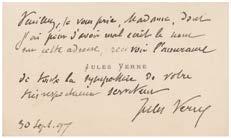 Veuillez, je vous prie, Madame, dont
j'ai peur d'avoir mal écrit le nom
sur cette adresse, recevoir l'assurance
JULES VERNE
de toute la sympathie de votre
très respectueux serviteur
Jules Verne
30 Sept. 97